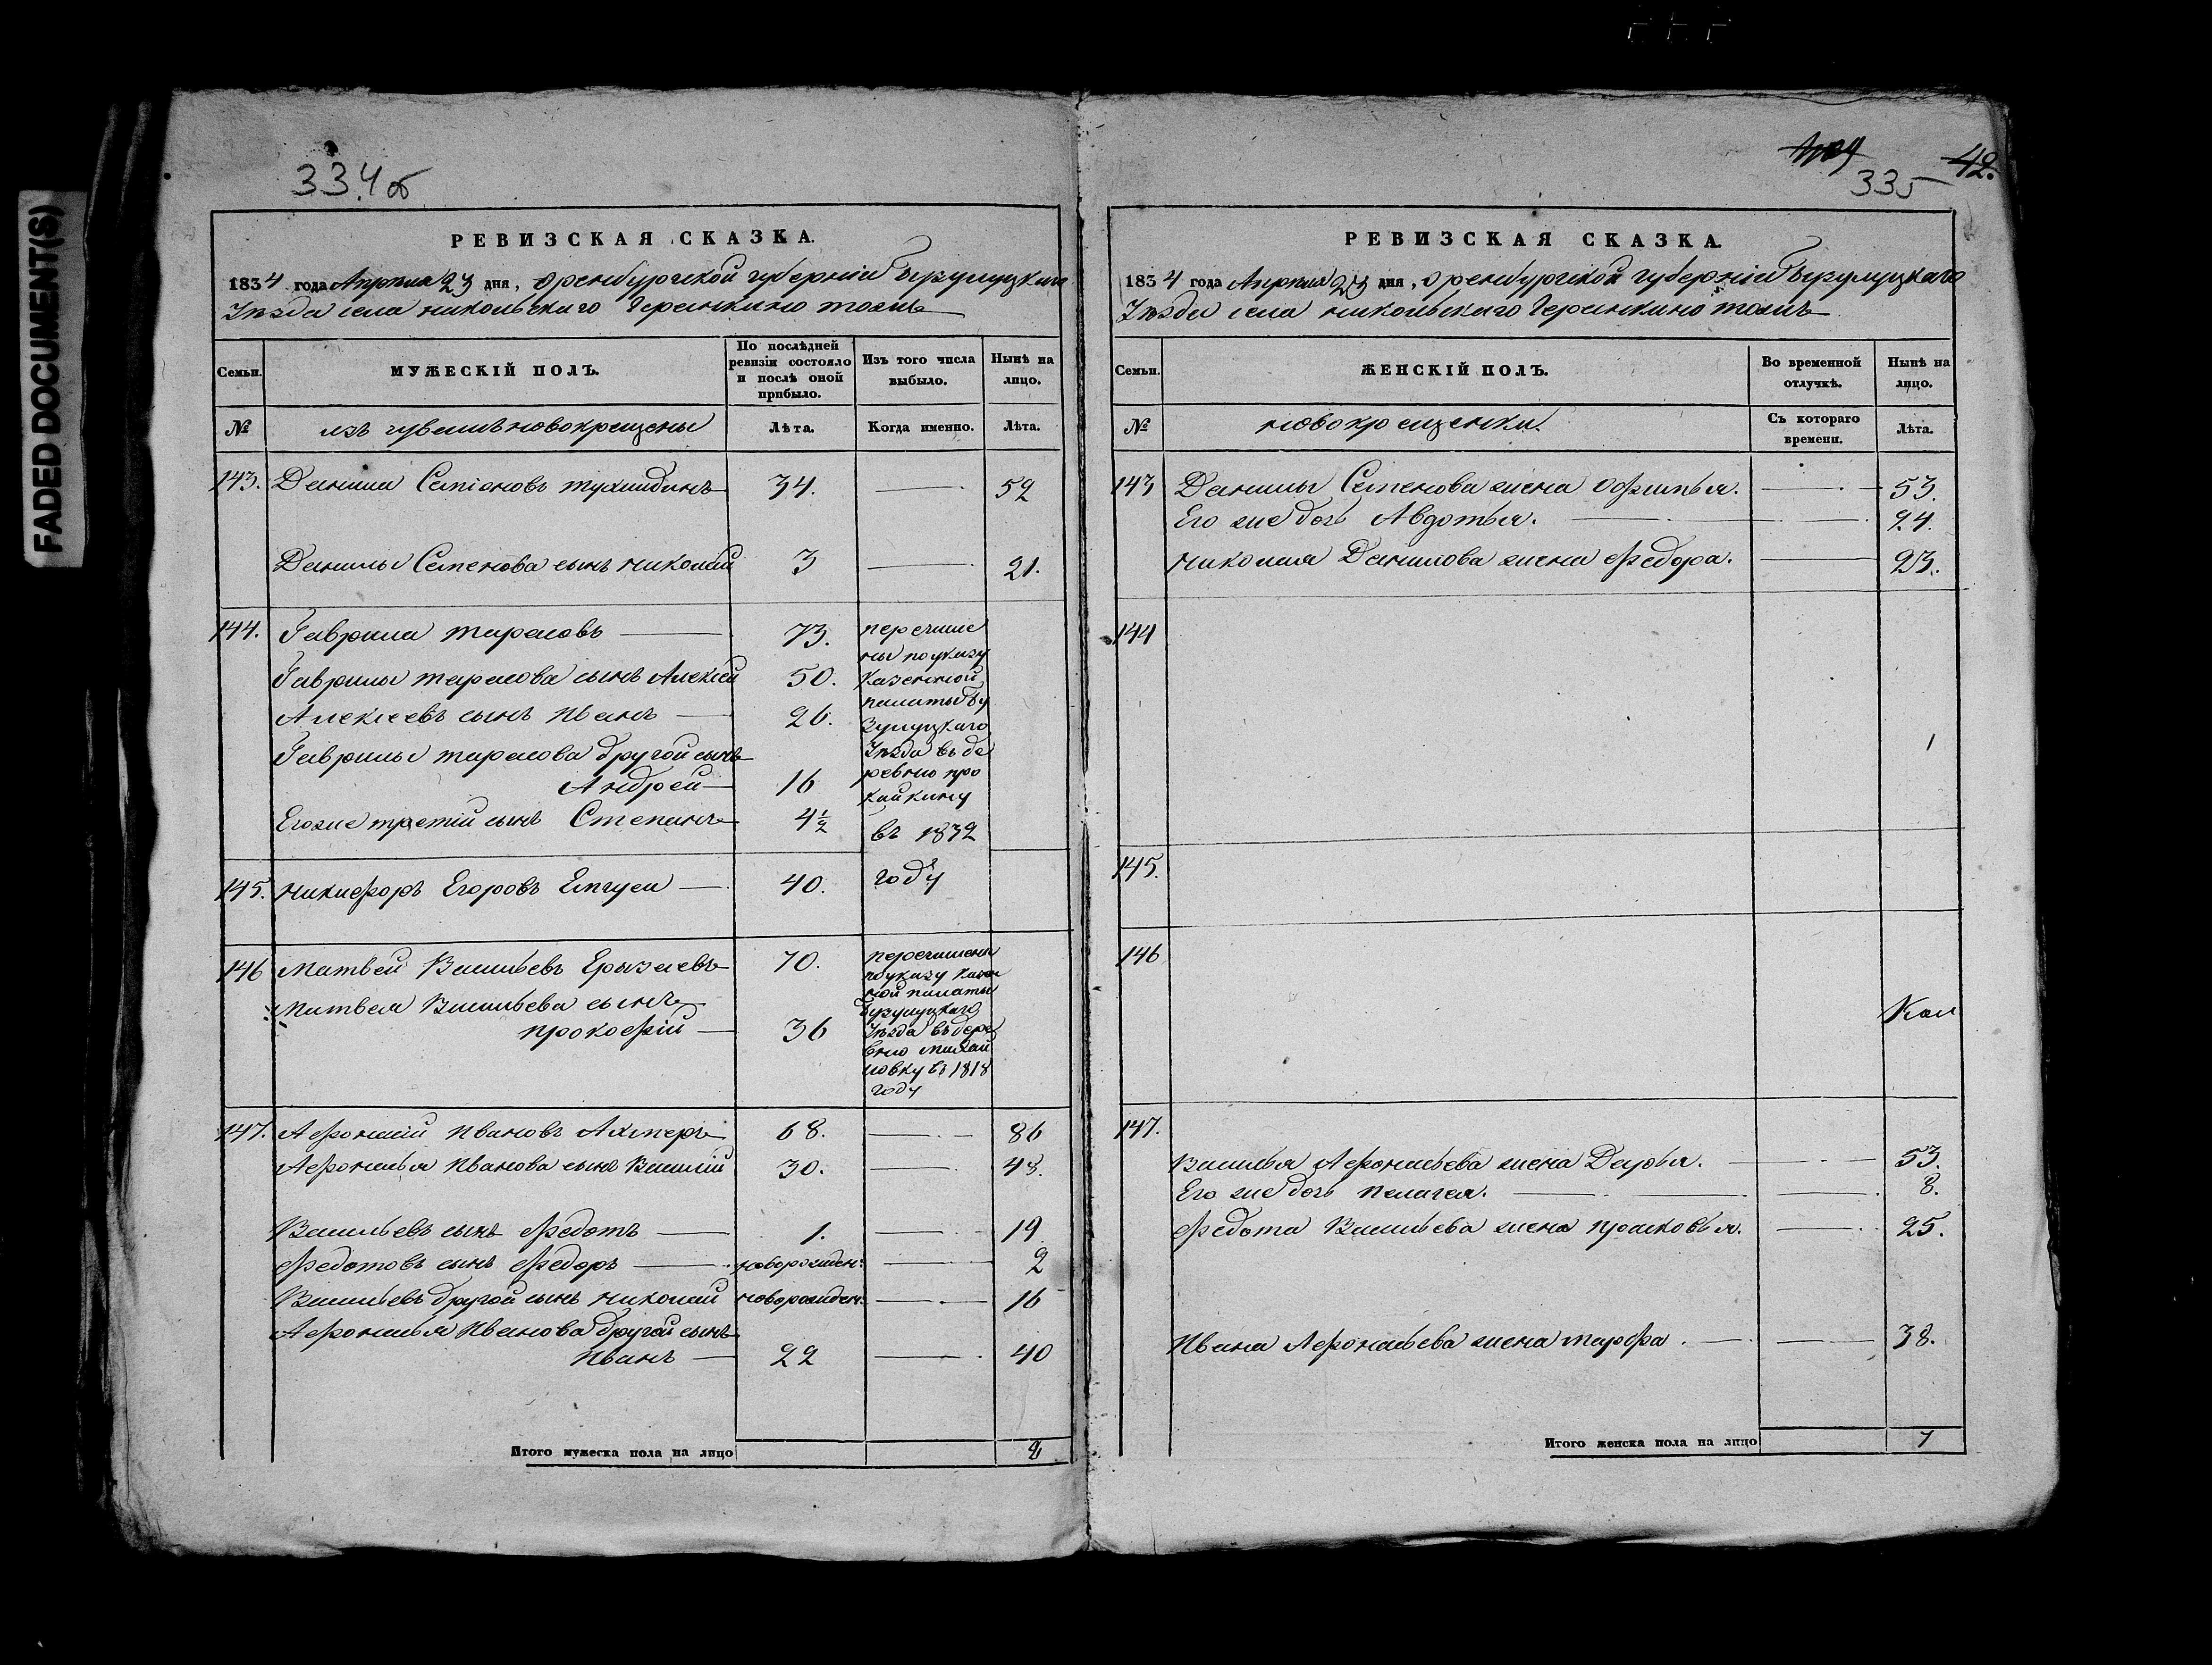 FADED DOCUMENT(S)
334об
РЕВИЗСКАЯ СКАЗКА.
1834 года Апреля 23 дня, Оренбургской губерніи Бузулуцкаго
Уезда села никольскаго Черинкино тожъ
Семьи.
МУЖЕСКІЙ ПОЛЪ.
По послѣдней ревизіи состояло и послѣ оной прибыло.
Изъ того числа выбыло.
Нынѣ на лицо.
№
изъ чувашъ новокрещены
Лѣта.
Когда именно.
Лѣта.
143. Данила Семіоновъ 34. 52
Данилы Семенова сынъ николай 3 21.
144. Гаврила тарасовъ 73.
Гаврилы тарасова сынъ Алексей 50.
Алексеевъ сынъ Иванъ 26.
Гаврилы тарасова другой сынъ
Андрей 16
Егоже третій сынъ Степанъ 4½
перечисле
ны по указу
Казенной
палаты Бу
зулуцкаго
Уезда въ де
ревню про
кайкину
въ 1832
году
145. никифоръ Егоровъ 40.
146 матвей Васильевъ 70.
матвея Васильева сынъ
прокофій 36
перечислены
по указу казен
ной палаты
Бузулуцкаго
Уезда въ дере
вню михай
ловку въ 1818
году
147. Афонасій Ивановъ 68. 86
Афонасья Иванова сынъ Василій 30. 48.
Васильевъ сынъ Федотъ 1. 19
Федотовъ сынъ Федоръ новорожден: 2
Васильевъ другой сынъ николай новорожден: 16
Афонасья Иванова другой сынъ
Иванъ 22 40
Итого мужеска пола на лицо
335
42.
РЕВИЗСКАЯ СКАЗКА.
1834 года Апреля 23 дня, Оренбургской губерніи Бузулуцкаго
Уезда села никольскаго Черинкино тожъ
Семьи.
ЖЕНСКІЙ ПОЛЪ.
Во временной отлучкѣ.
Нынѣ на лицо.
№
новокрещенки.
Съ котораго времени.
Лѣта.
143 Данилы Семенова жена 53.
Его же дочь Авдотья. 24.
николая Данилова жена Федора. 23.
144
145.
146
147.
Василья Афонасьева жена Дарья. 53.
Его же дочь пелагея. 8.
Федота Васильева жена прасковья. 25.
Ивана Афонасьева жена марфа. 38.
Итого женска пола на лицо 7